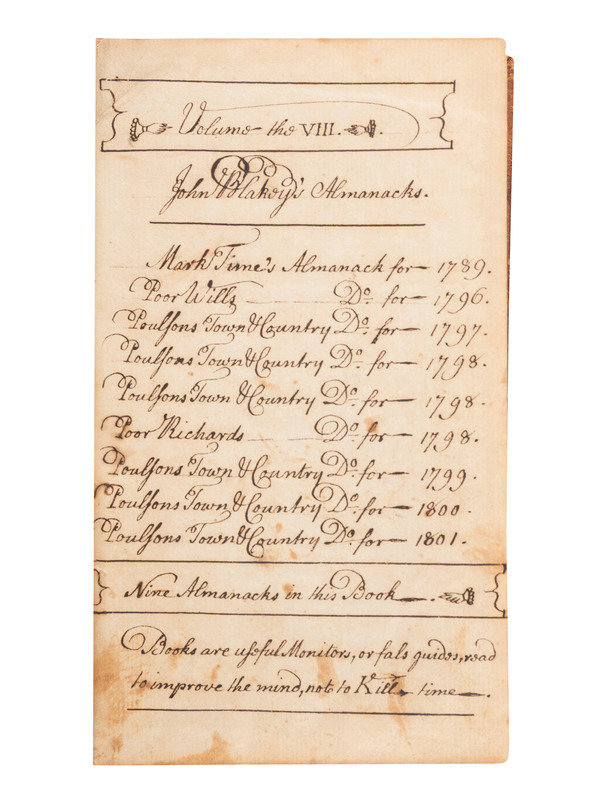 Volume the VIII.
John Blakey's Almanacks.
Mark Time's Almanack for 1789.
Poor Wills Do. for 1796.
Poulsons Town & Country Do. for 1797.
Poulsons Town & Country Do. for 1798.
Poulsons Town & Country Do. for 1798.
Poor Richards Do. for 1798.
Poulsons Town & Country Do. for 1799.
Poulsons Town & Country Do. for 1800.
Poulsons Town & Country Do. for 1801.
Nine Almanacks in this Book.
Books are useful Monitors, or fals guides, read
to improve the mind, not to Kill time.